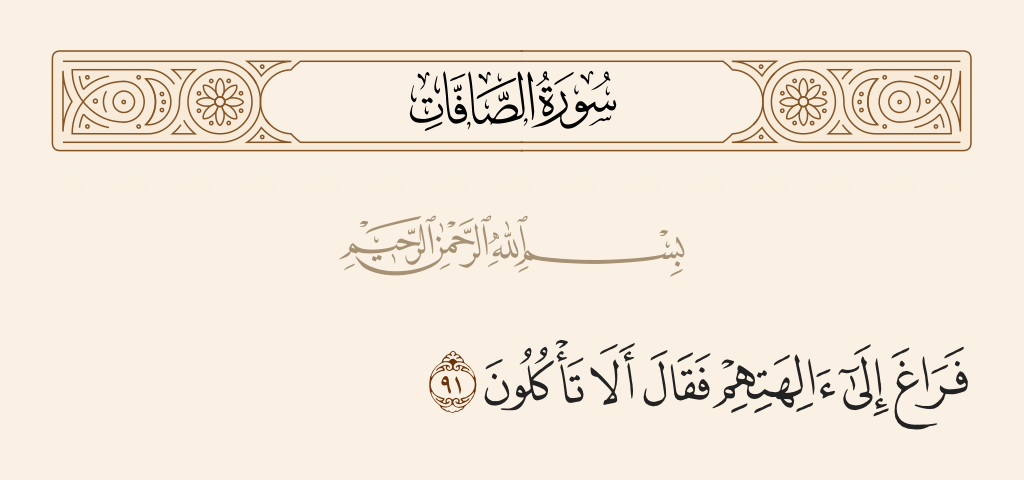 سُورَةُ الصَّافَّاتِ
بِسْمِ ٱللَّهِ ٱلرَّحْمَٰنِ ٱلرَّحِيمِ
فَرَاغَ إِلَىٰٓ ءَالِهَتِهِمْ فَقَالَ أَلَا تَأْكُلُونَ ٩١